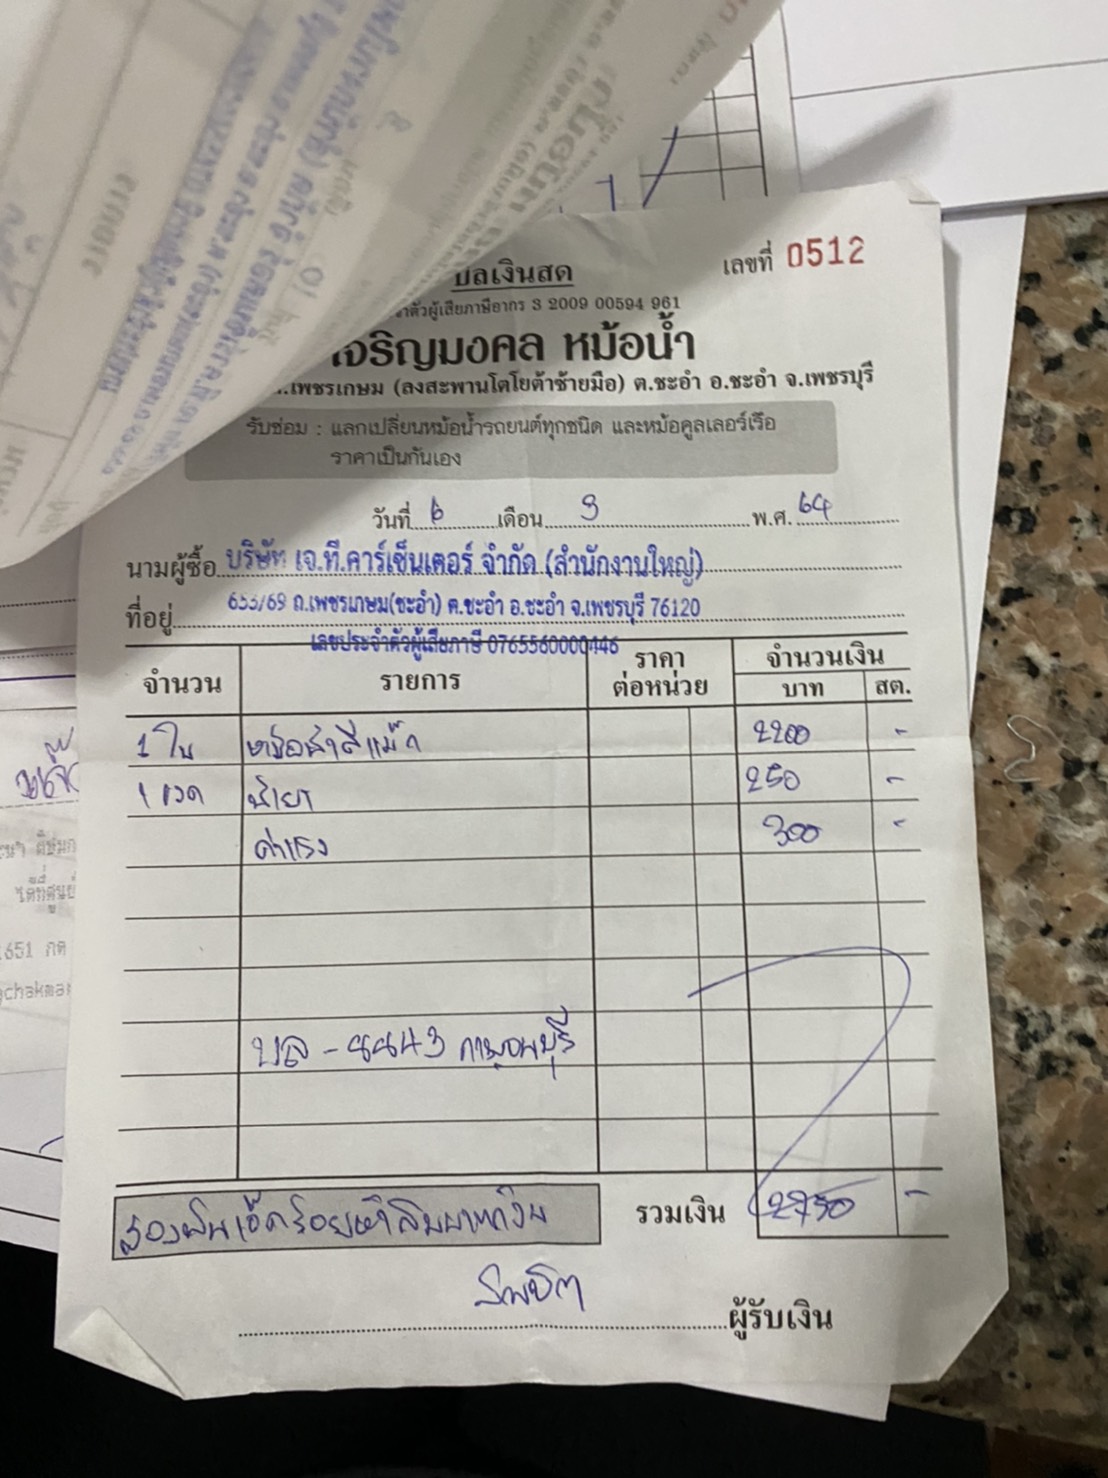 บิลเงินสด
เลขที่ 0512
ตัวผู้เสียภาษีอากร 3 2009 00594 961
เจริญมงคล หม้อน้ำ
.เพชรเกษม (ลงสะพานโตโยต้าซ้ายมือ) ต.ชะอำ อ.ชะอำ จ.เพชรบุรี
รับซ่อม : แลกเปลี่ยนหม้อน้ำรถยนต์ทุกชนิด และหม้อคูลเลอร์เรือ
ราคาเป็นกันเอง
วันที่ 6 เดือน 9 พ.ศ. 64
นามผู้ซื้อ บริษัท เจ.ที.คาร์เซ็นเตอร์ จำกัด (สำนักงานใหญ่)
ที่อยู่ 653/69 ถ.เพชรเกษม(ชะอำ) ต.ชะอำ อ.ชะอำ จ.เพชรบุรี 76120
เลขประจำตัวผู้เสียภาษี 0765560000446
จำนวน รายการ ราคาต่อหน่วย จำนวนเงิน
บาท สต.
1 ใบ หม้อน้ำดีแม็ก 2200 -
1 ขวด น้ำยา 250 -
ค่าแรง 300 -
บล - 8843 กาญจนบุรี
สองพันเจ็ดร้อยห้าสิบบาทถ้วน รวมเงิน 2750 -
ผู้รับเงิน
651 กด
chakma